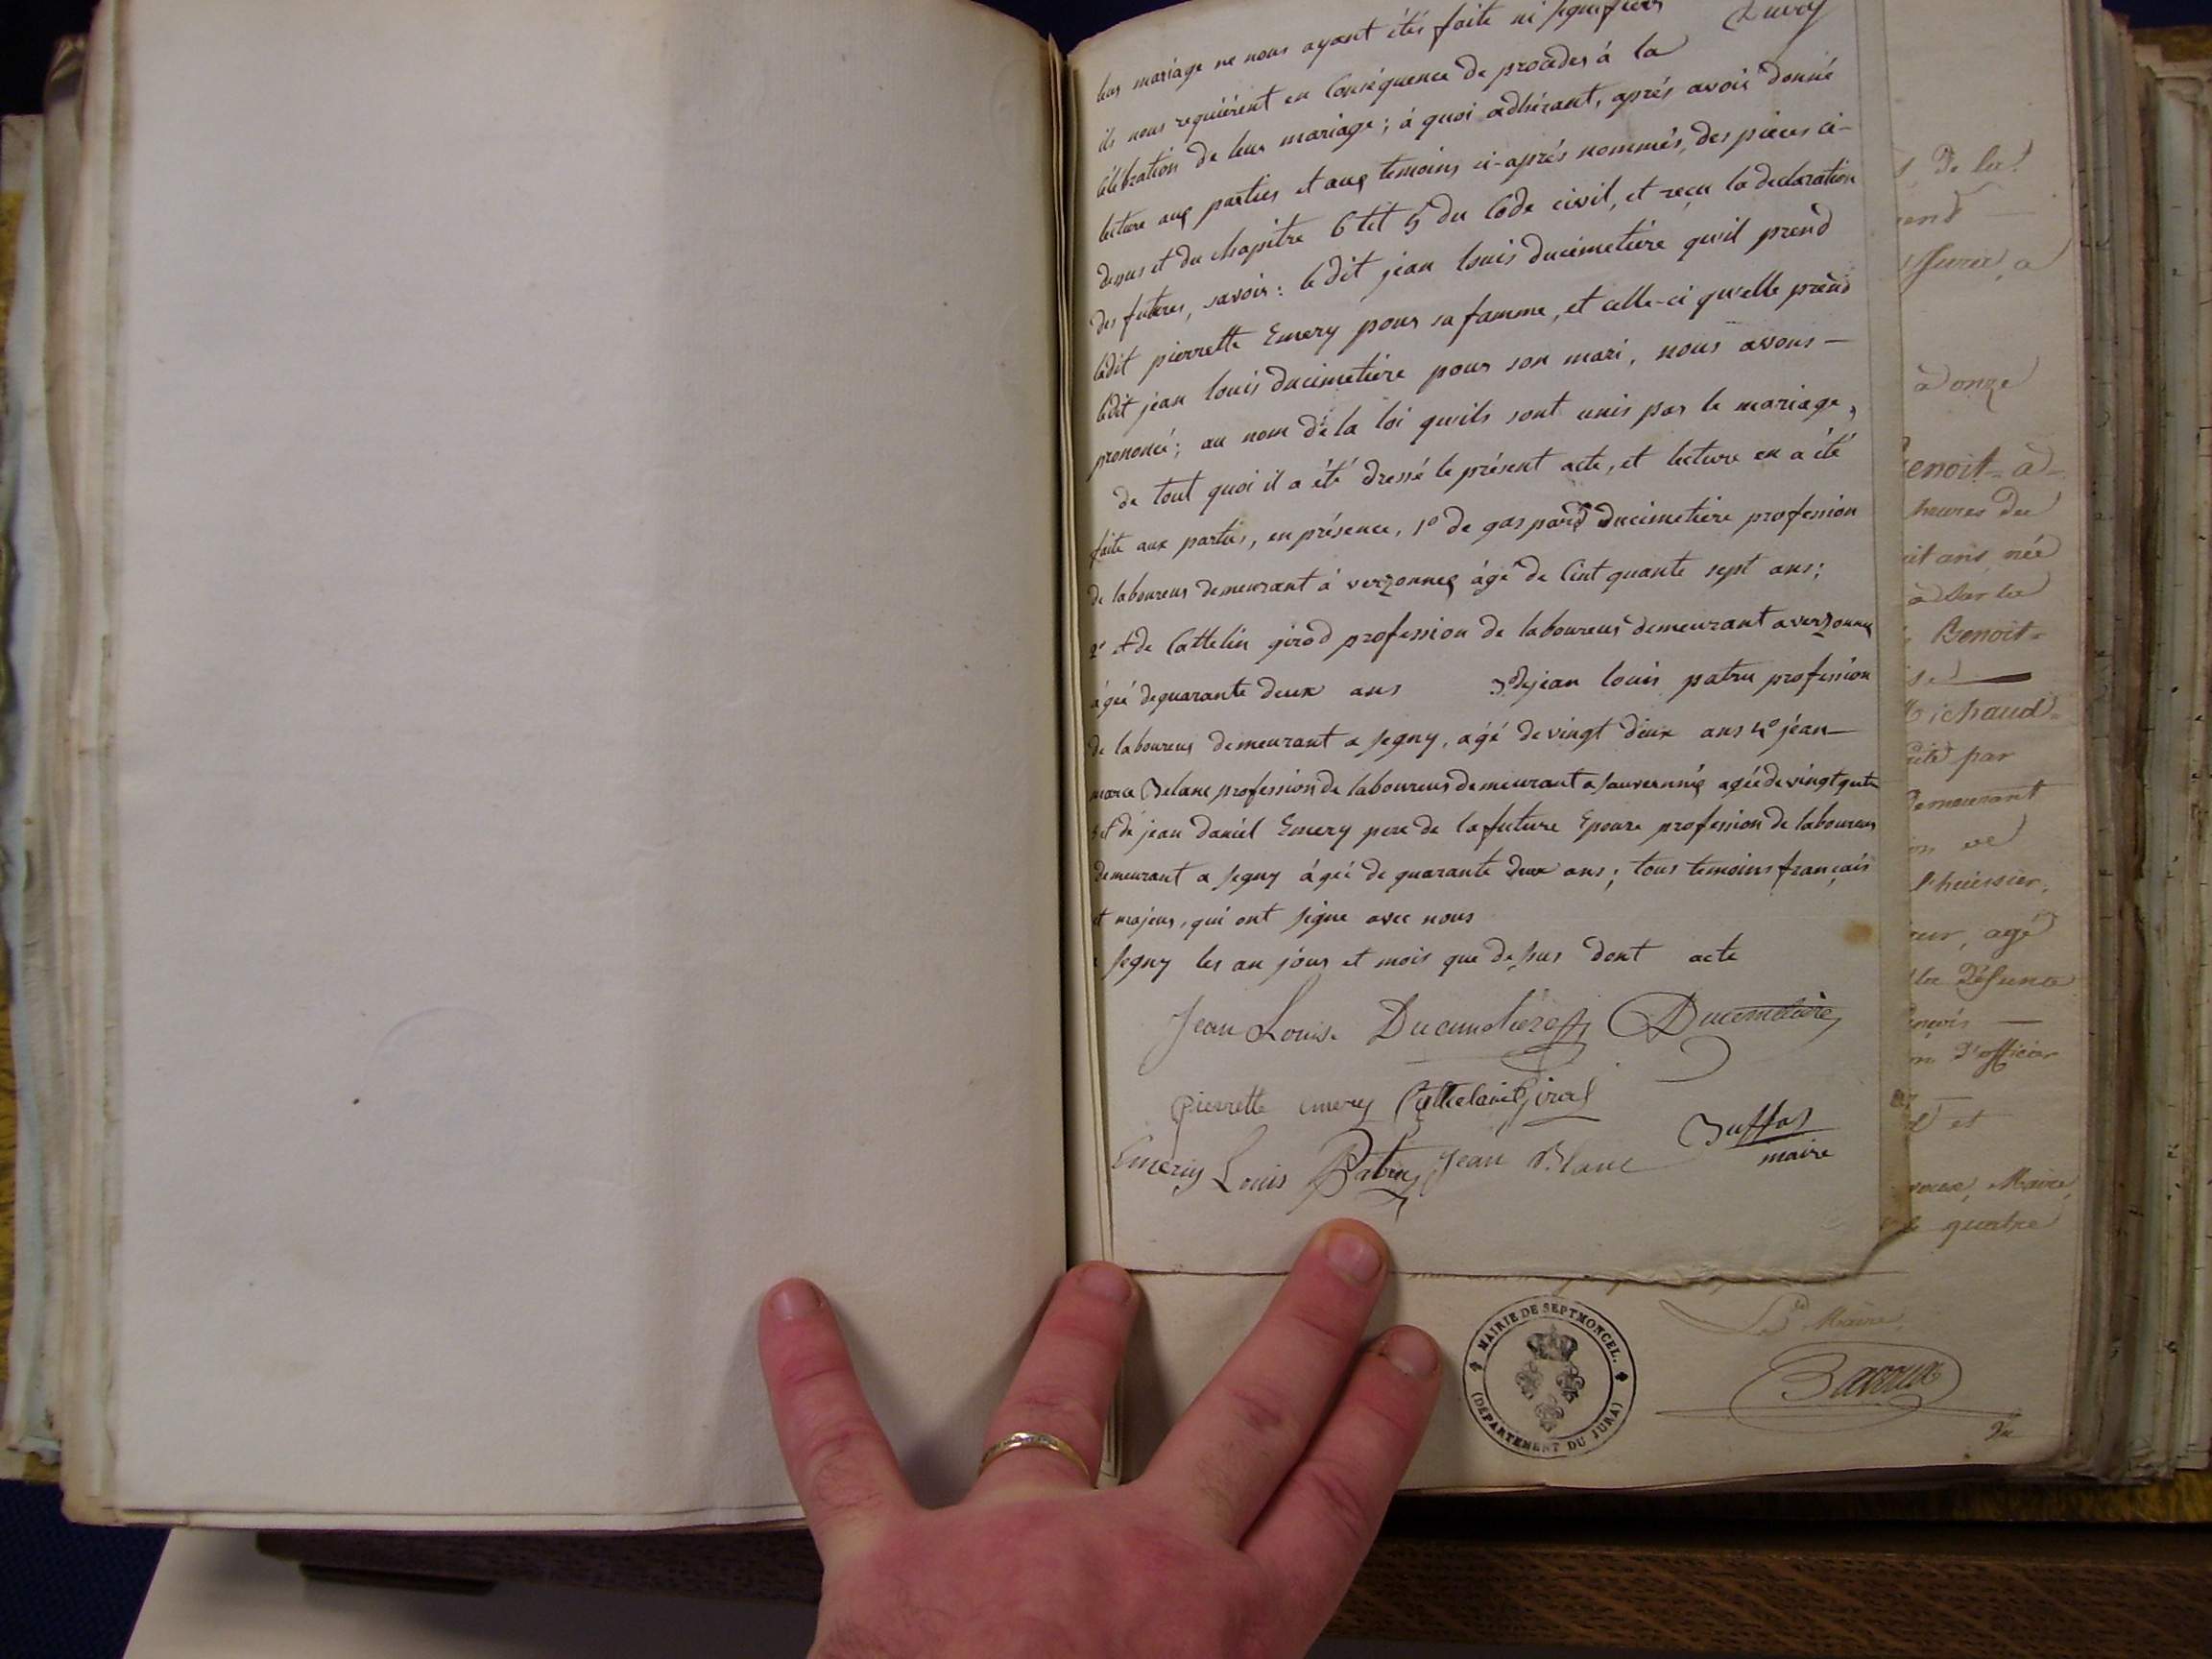 leur mariage ne nous ayant étés faite ni signifiées
ils nous requiérent en Conséquence de procéder á la
Célébration de leur mariage; á quoi adhérant, aprés avoir donné
lecture aux parties et aux temoins ci-aprés nommés, des pieces ci-
dessus et du chapitre 6 tit 5 du Code civil, et reçu la declaration
des futeres, savoir: le dit jean louis ducimetiére qu'il prend
ladit pierrette Emery pour sa famme, et celle-ci qu'elle prend
ledit jean louis ducimetiére pour son mari, nous avons —
prononcé; au nom de la loi qu'ils sont unis par le mariage,
de tout quoi il a été dressé le présent acte, et lecture en a été
faite aux parties, en présence, 1º de gaspard Ducimetiere profession
de laboureur demeurant á verzonnex ágé de Cint quante sept ans;
2º et de Cattelin girod profession de laboureur demeurant a verzonnex
ágé de quarante deux ans 3º de jean louis patru profession
de laboureur demeurant a segny, ágé de vingt deux ans 4º jean —
marce Belanc profession de laboureur demeurant a sauvernnie agée de vingt
5 et de jean daniel Emery pere de la future Epouse profession de laboureur
demeurant a segny ágé de quarante deux ans; tous temoins français
et majeur, qui ont signe avec nous
a segny les an jour et mois que dessus dont acte
Jean Louis Ducimetiére Ducimetiére
pierrette emery Cathelain Girod
Emery Louis Patru Jean Blanc
maire
s de la
à onze
Benoit-
heures du
née
à
Benoit-
Michaud-
par
demeurant
l'huissier,
agé
la Défunte
d'officier
et
Maire
quatre
MAIRIE DE SEPTMONCEL.
(DÉPARTEMENT DU JURA)
Le Maire,
Bavoux